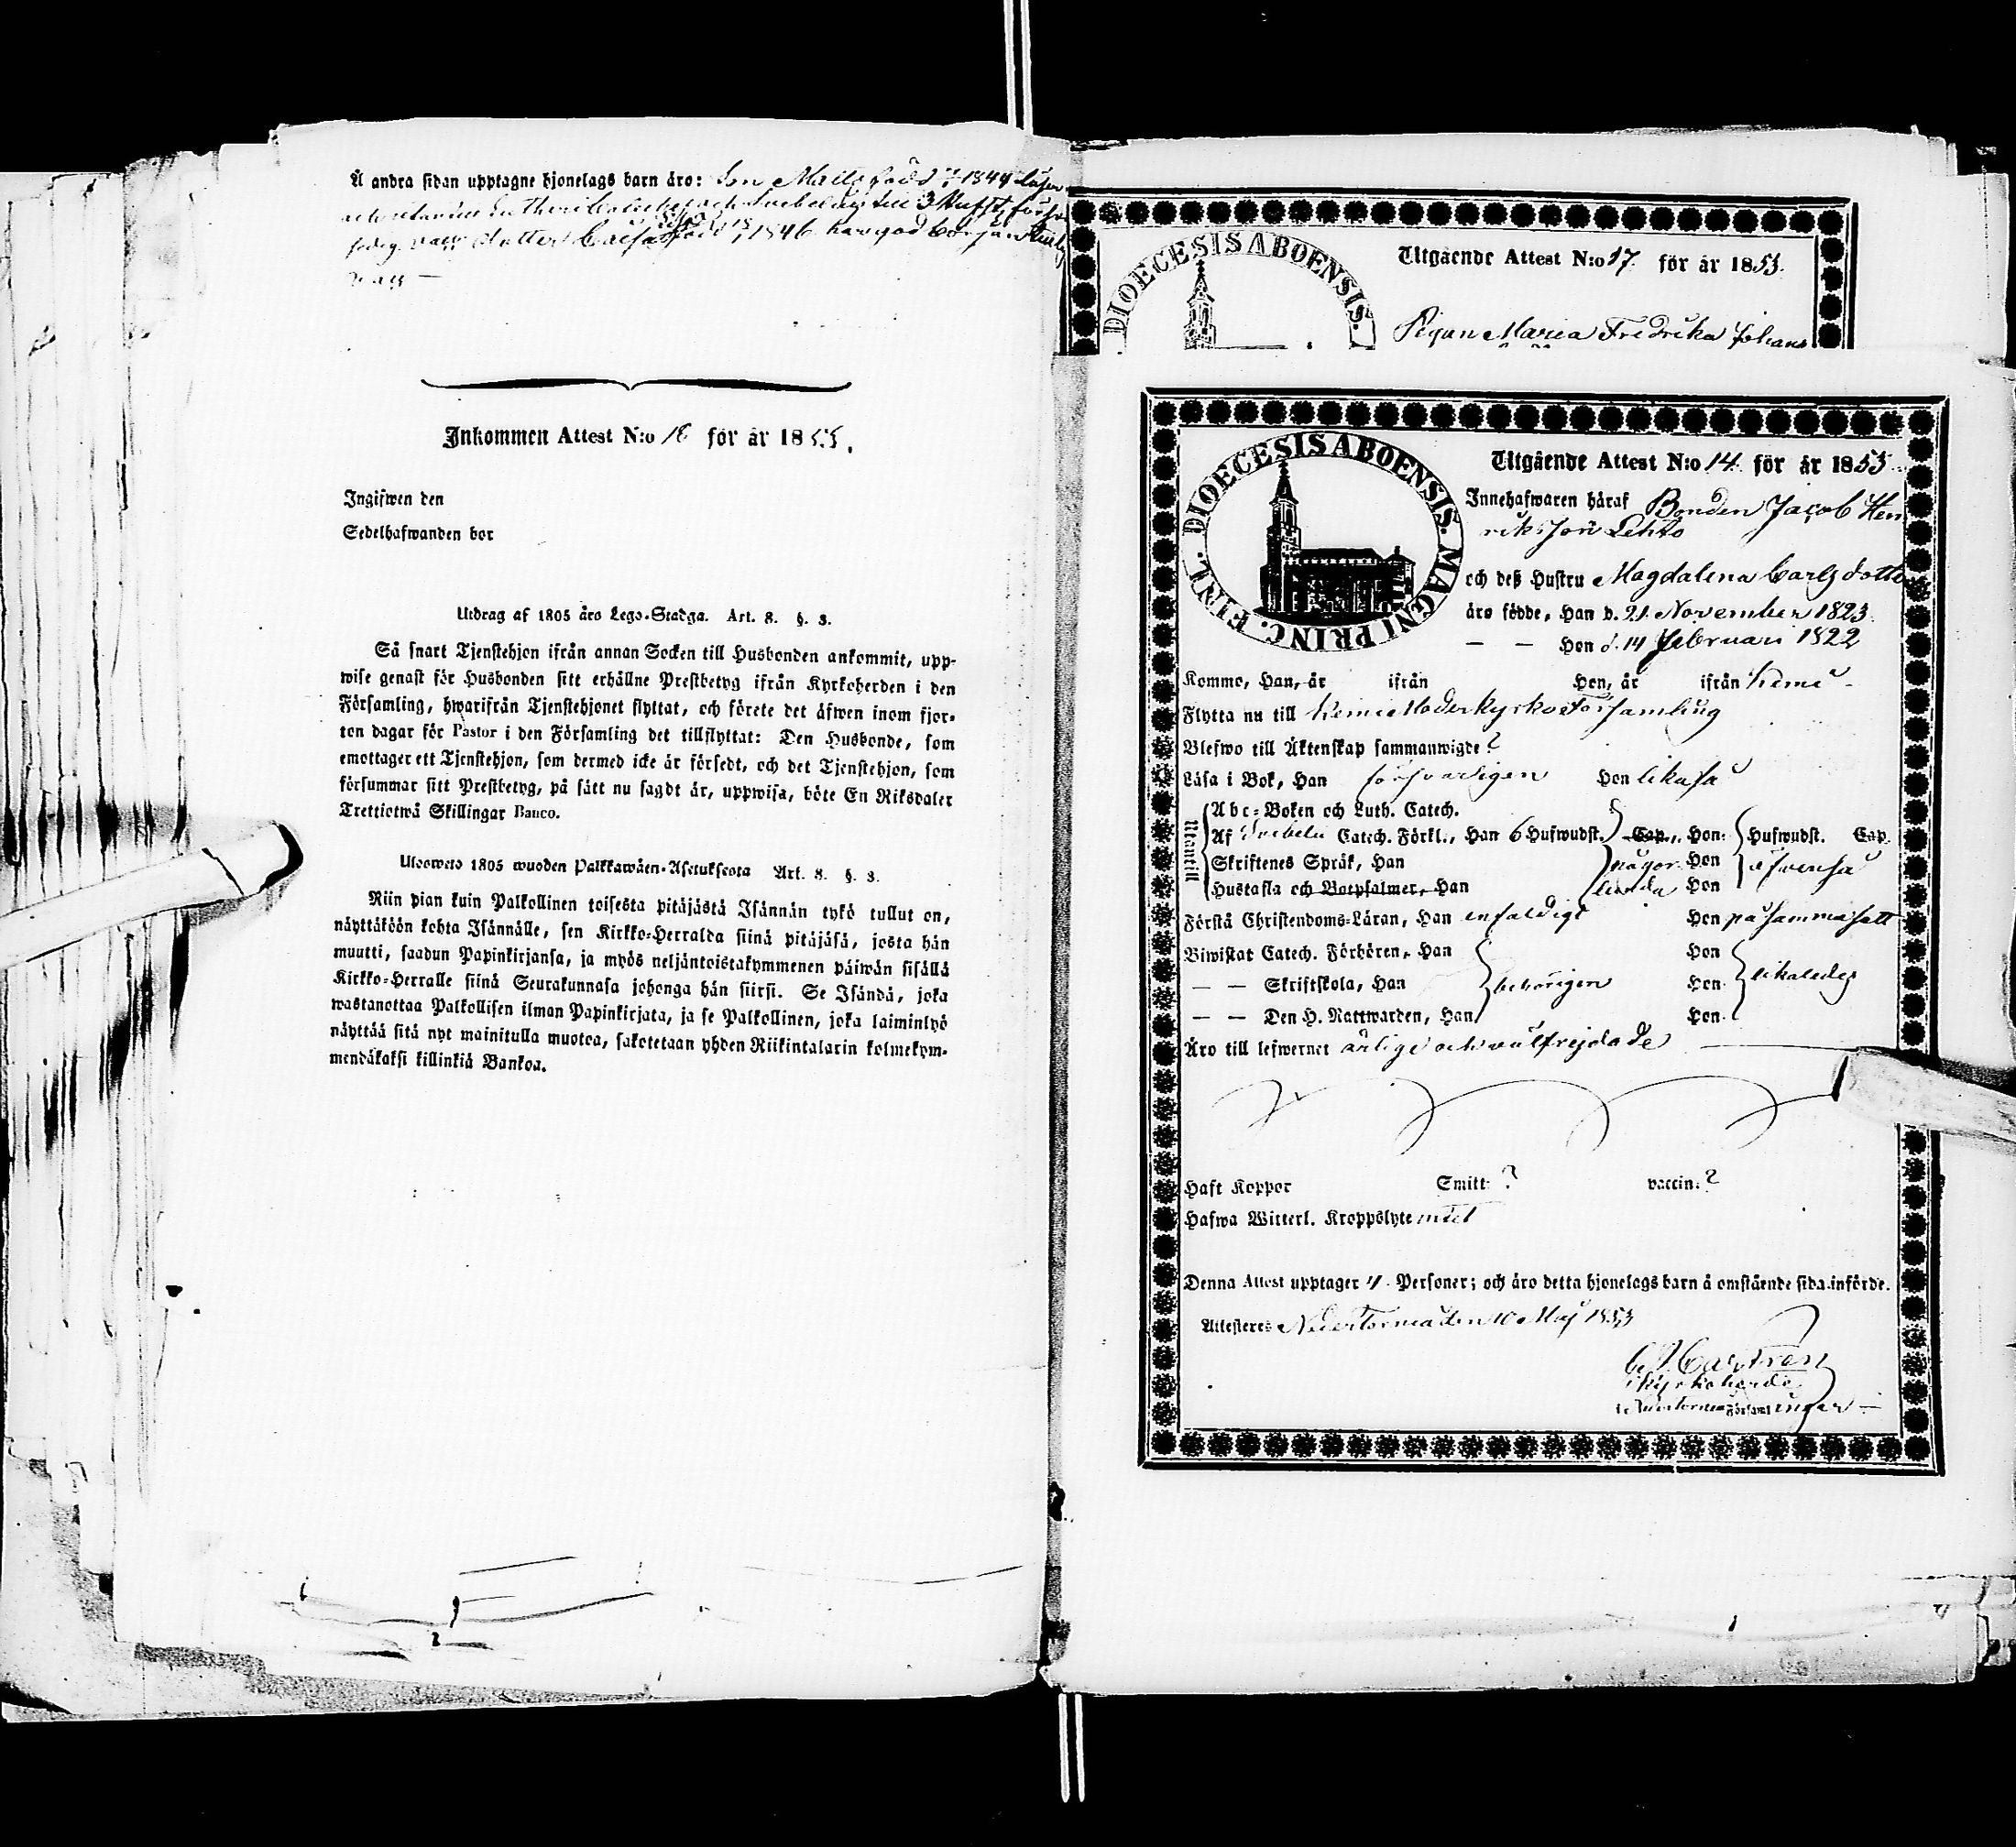 Å andra sidan upptagne hjonelags barn äro: Son Matts född 1844 läser
och Svebelii till 3 Hufst. försv
dotter Caisa född 1846 har god början
Inkommen Attest N:o 18 för år 1853.
Ingifwen den
Sedelhafwanden bor
Utdrag af 1805 års Lego-Stadga. Art. 8. §. 3.
Så snart Tjenstehjon ifrån annan Socken till Husbonden ankommit, upp-
wise genast för Husbonden sitt erhållne Prestbetyg ifrån Kyrkoherden i den
Församling, hwarifrån Tjenstehjonet flyttat, och förete det äfwen inom fjor-
ton dagar för Pastor i den Församling det tillflyttat: Den Husbonde, som
emottager ett Tjenstehjon, som dermed icke är försedt, och det Tjenstehjon, som
försummar sitt Prestbetyg, på sätt nu sagdt är, uppwisa, böte En Riksdaler
Trettiotwå Skillingar Banco.
Ulosweto 1805 wuoden Palkkawäen-Asetuksesta Art. 8. §. 3.
Niin pian kuin Palkollinen toisesta pitäjästä Isännän tykö tullut on,
näyttäköön kohta Isännälle, sen Kirkko-Herralda siinä pitäjäsä, josta hän
muutti, saadun Papinkirjansa, ja myös neljäntoistakymmenen päiwän sisällä
Kirkko-Herralle siinä Seurakunnasa johonga hän siirsi. Se Isändä, joka
wastanottaa Palkollisen ilman Papinkirjata, ja se Palkollinen, joka laiminlyö
näyttää sitä nyt mainitulla muotoa, sakotetaan yhden Riikintalarin kolmekym-
mendäkaksi killinkiä Bankoa.
Utgående Attest N:o 17. för år 1853.
DIOECESIS ABOENSIS.
Pigan Maria Fredrika Johans
Utgående Attest N:o 14. för år 1853.
DIOECESIS ABOENSIS. MAGNI PRINC. FINL.
Innehafwaren häraf Bonden Jacob Hen
riksson Lehto
och deß Hustru Magdalena Carlsdotte
äro födde, Han d. 21. November 1823.
— — Hon d. 14 Februari 1822
Komne, Han, år ifrån Hon, år ifrån Kemi
Flytta nu till Kemi Moderkyrko Församling
Blefwo till Äktenskap sammanwigde?
Läsa i Bok, Han försvarligen Hon likaså
Utantill
Abc-Boken och Luth. Catech.
Af Svebelii Catech. Förkl., Han 6 Hufwudst. Cap., Hon: Hufwudst. Cap.
Skriftenes Språk, Han någor Hon äfvenså
Hustafla och Botpsalmer, Han lunda Hon
Förstå Christendoms-Läran, Han enfaldigt Hon på samma sätt
Biwistat Catech. Förhören, Han Hon
— — Skriftskola, Han behörigen Hon likaledes
— — Den H. Nattwarden, Han Hon
Äro till lefwernet ärlige och välfrejdade
Haft Koppor Smitt. ? vaccin. ?
Hafwa Witterl. Kroppslyte intet
Denna Attest upptager 4. Personer; och äro detta hjonelags barn å omstående sida införde.
Attesteras Nedertorneå den 10 Maj 1853
Castrén
Kyrkoherde
i Nedertorneå Församlingar